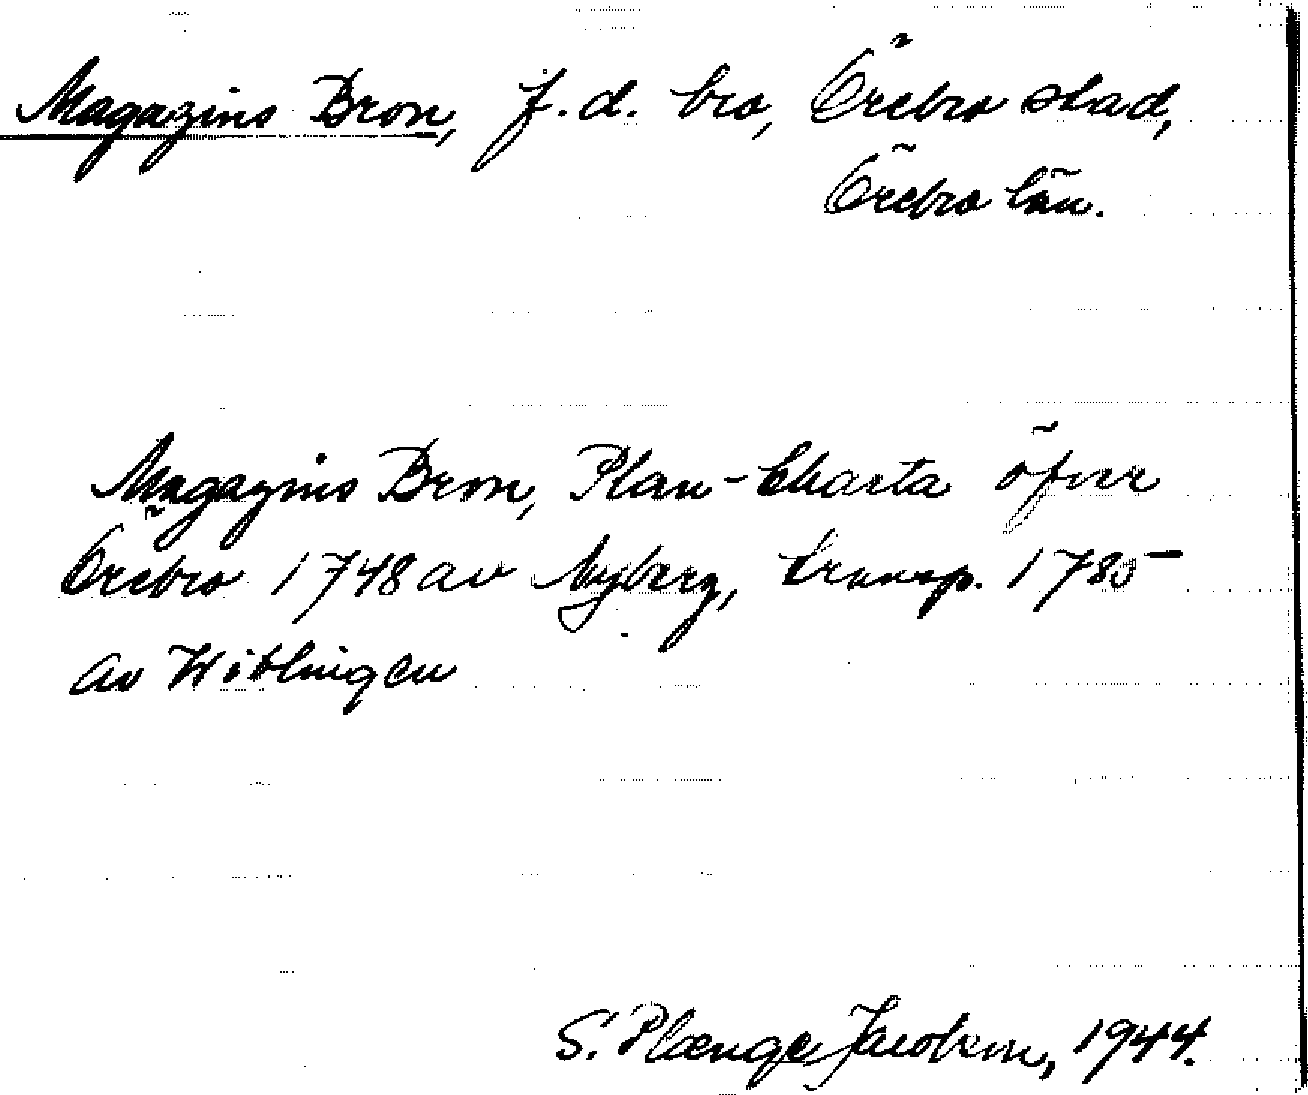 Magazins Bron, f.d. bro, Örebro stad,
Örebro län.
Magazins Bron, Plan-Charta öfver
Örebro 1748 av Nyberg, transp. 1785
av Wiblingen
S. Plænge Jacobson, 1944.